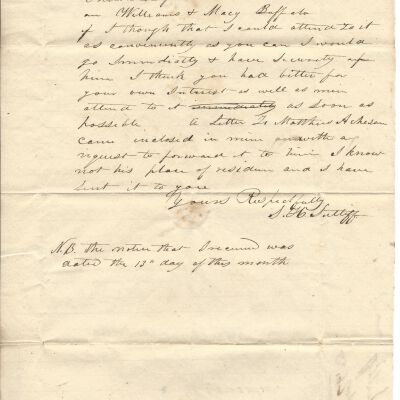 on Williams & Macy Buffalo
if I though that I could attend to it
as conveniently as you can I would
go Immidiетly & have Security of
him I think you had bitter for
your own Interest as well as mine
attend to it immidiately as soon as
possible a Letter To Matthew
came inclosed in mine with a
request to forward it to him I know
not his place of residence and I have
sent it to you
Yours Respectfully
S. H. Sutliff
N.B. the notice that I received was
dated the 13th day of this month